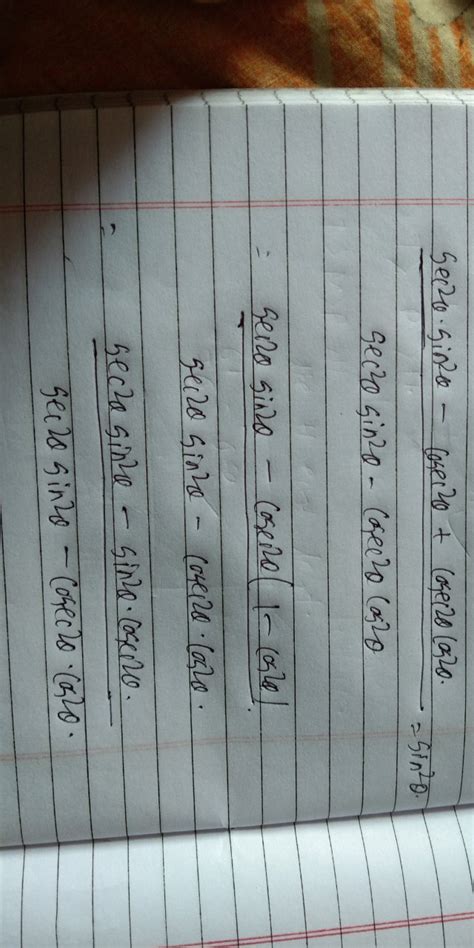 sec²θ·sin²θ − cosec²θ + cosec²θ cos²θ. = sin²θ.
sec²θ sin²θ − cosec²θ cos²θ
= sec²θ sin²θ − cosec²θ (1 − cos²θ)
sec²θ sin²θ − cosec²θ·cos²θ.
= sec²θ sin²θ − sin²θ·cosec²θ.
sec²θ sin²θ − cosec²θ·cos²θ.